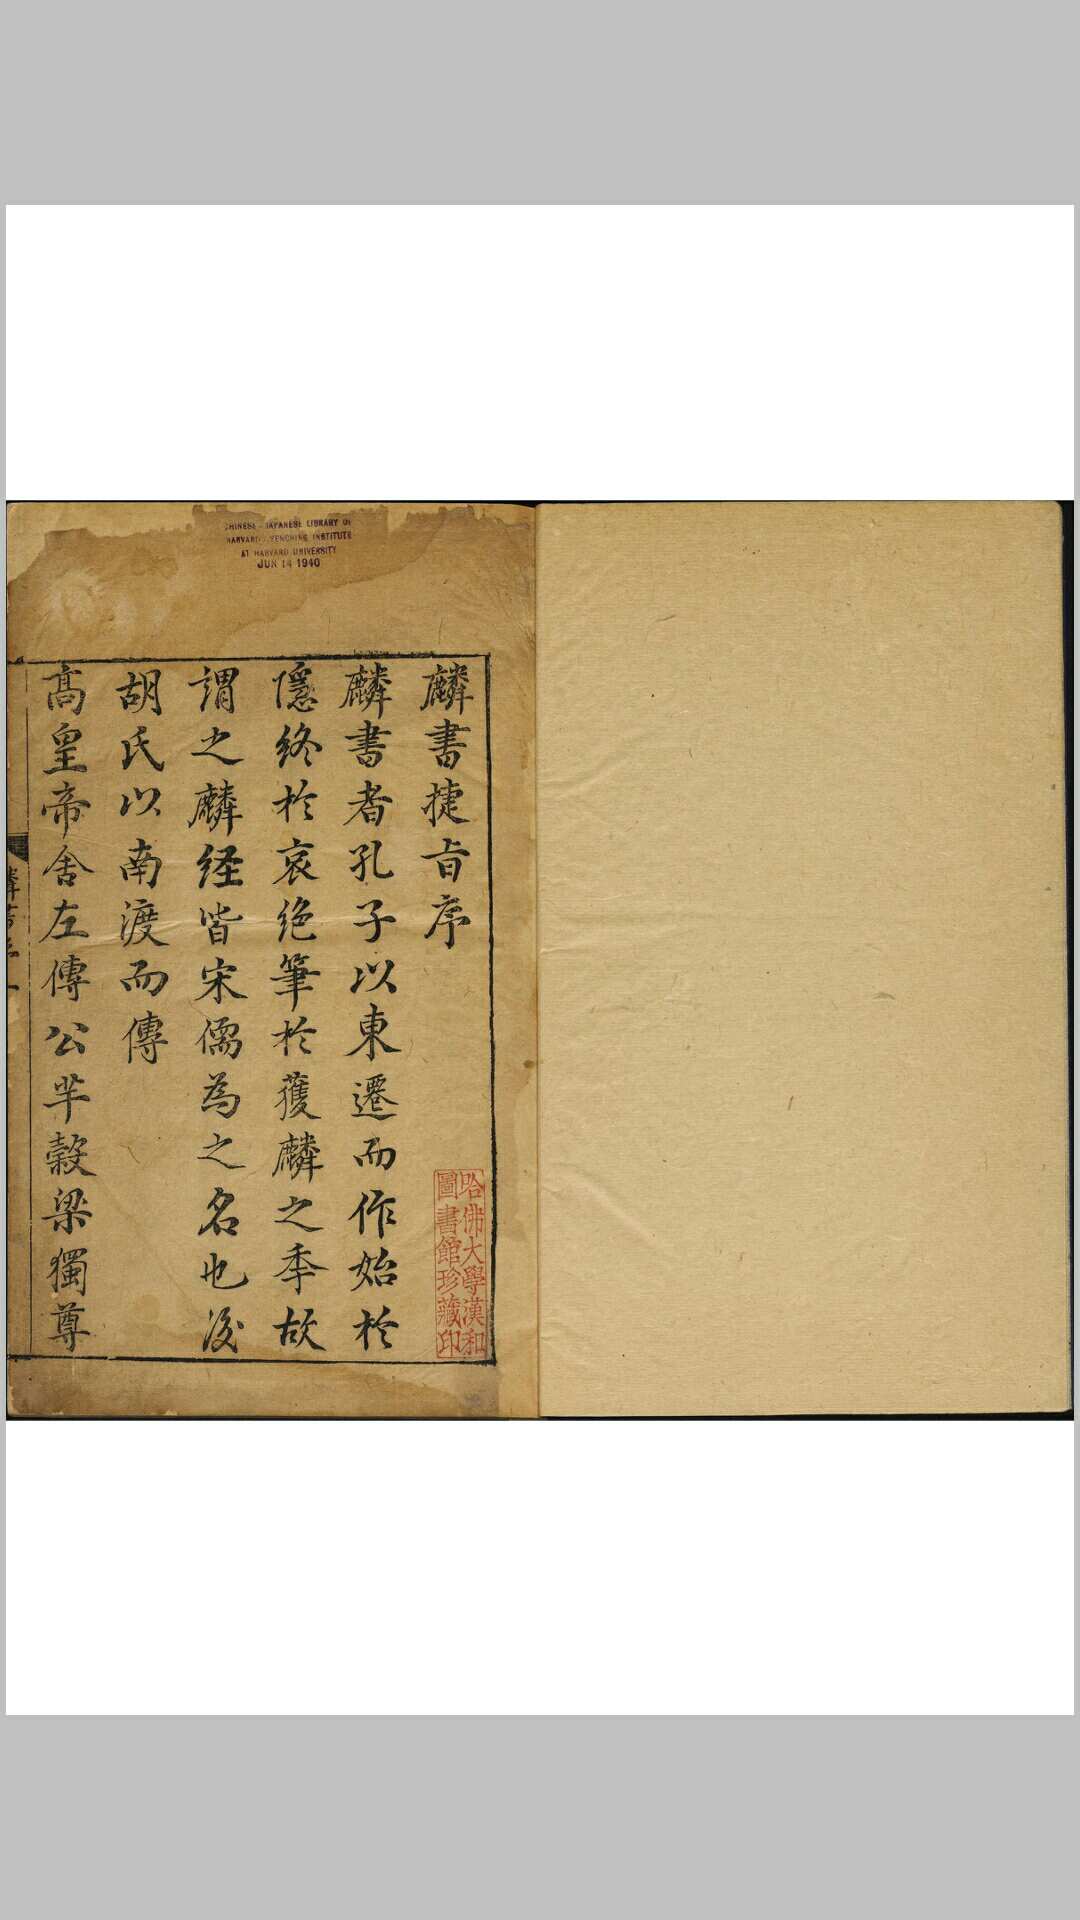 CHINESE-JAPANESE LIBRARY OF
HARVARD-YENCHING INSTITUTE
AT HARVARD UNIVERSITY
JUN 14 1940
麟書捷旨序
麟書者孔子以東遷而作始於
隱終於哀絶筆於獲麟之季故
謂之麟経皆宋儒為之名也後
胡氏以南渡而傳
髙皇帝舍左傳公羊榖梁獨尊
哈佛大學漢和
圖書館珍藏印